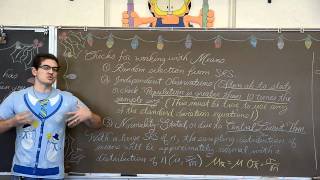 has
Checks for working with Means
① Random selection from SRS.
② Independent Observations (Okay to state
& check Population is greater than 10 times the
sample size) (This must be true to use any
of the standard deviation equations!)
③ Normality Stated, or due to Central Limit Thm
With a large SRS of n, the sampling distribution of
means will be approximately normal with a
distribution of N(μ, σ/√n) μx̄ = μ σx̄ = σ/√n